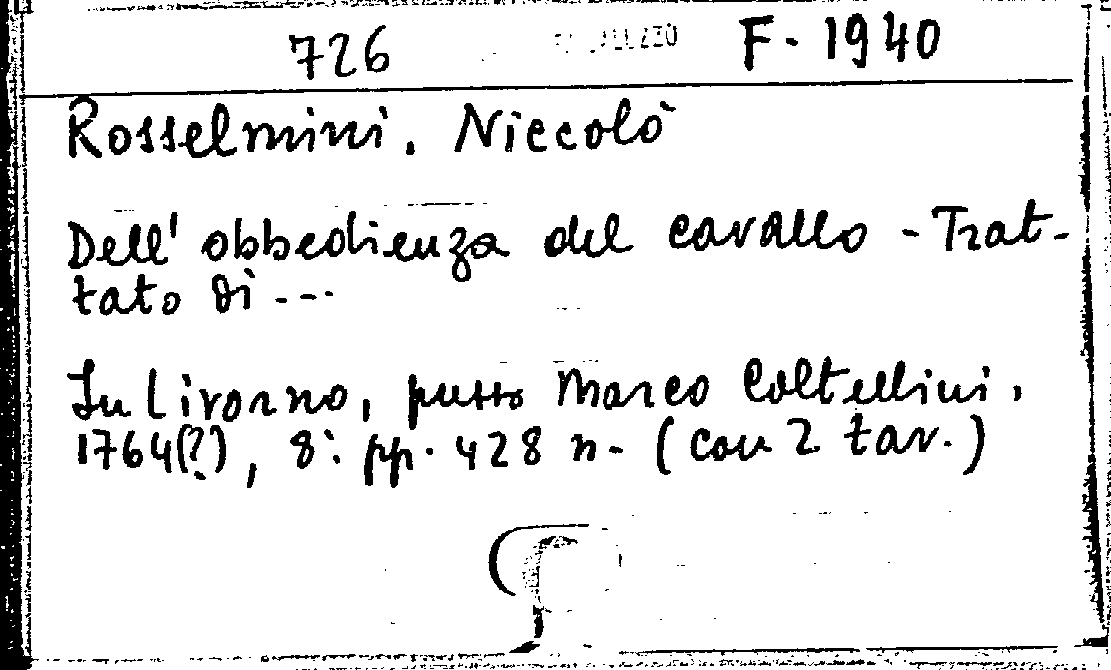 726 F. 1940
Rosselmini. Niccolò
Dell' obbedienza del cavallo - Trat-
tato di ---
In Livorno, presso Marco Coltellini,
1764(?), 8: pp. 428 n. (con 2 tav.)